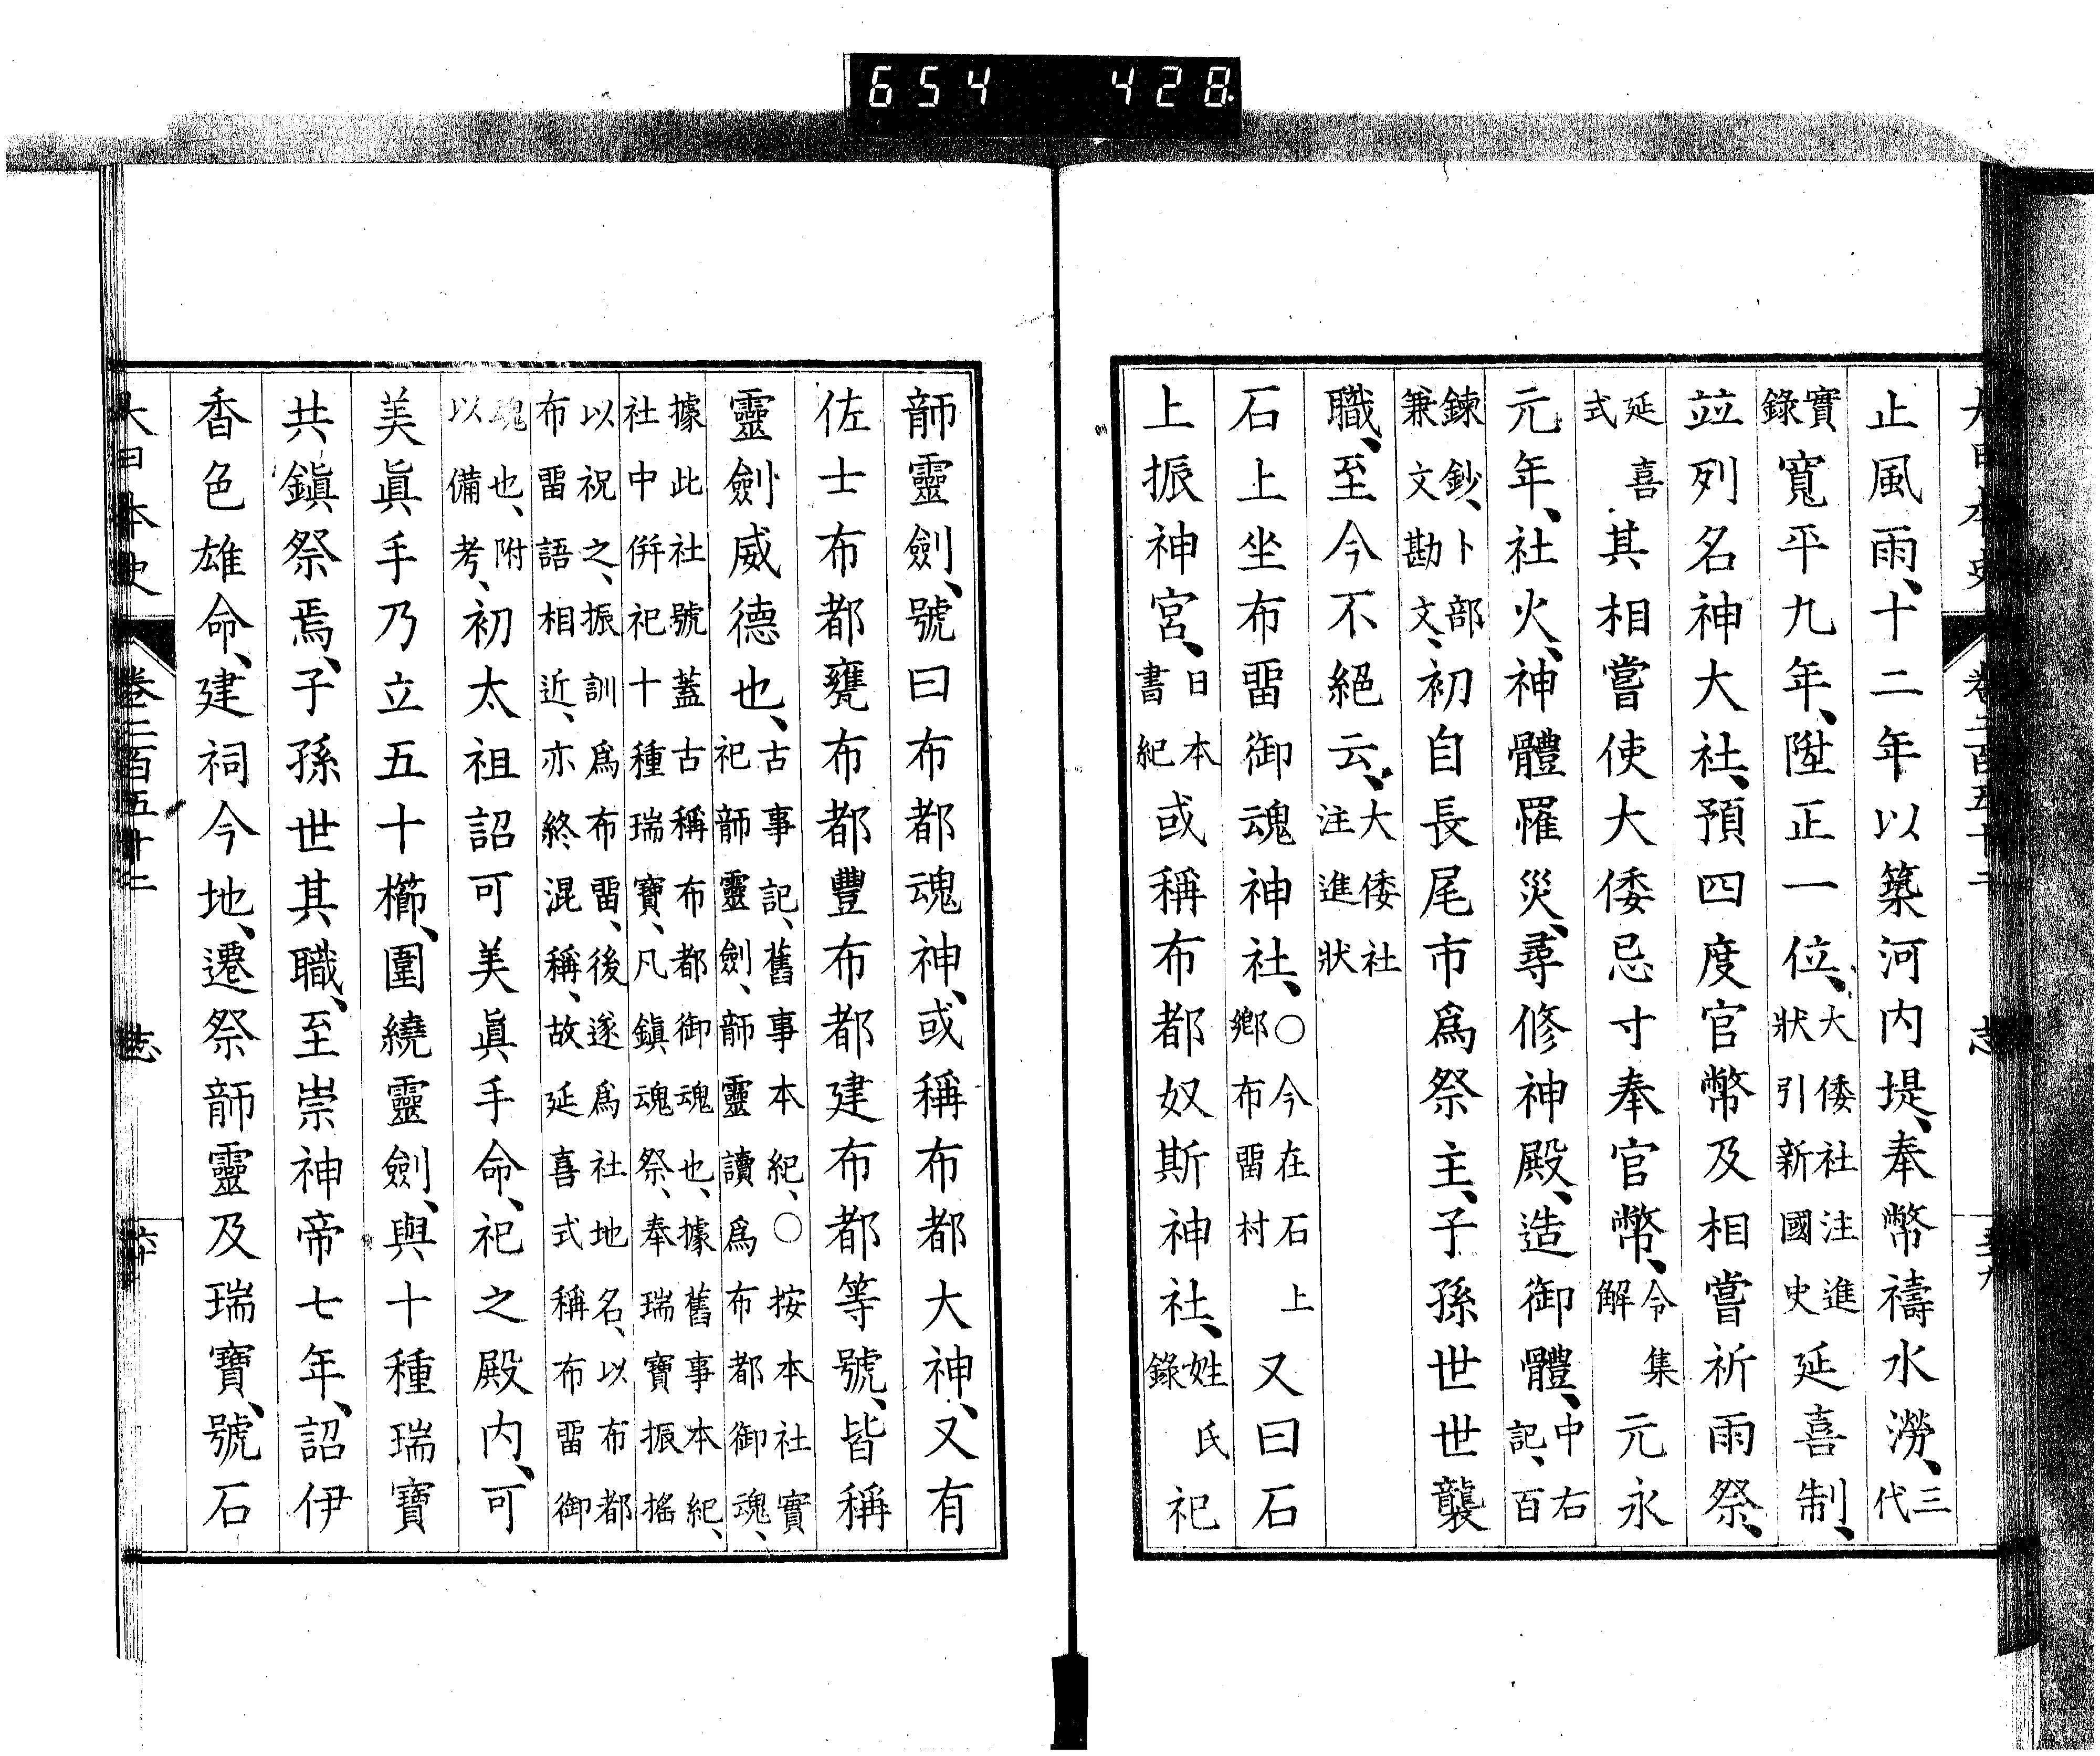 大日本史 卷二百五十二 志 五九
止風雨、十二年以築河内堤、奉幣禱水澇、三代
實錄寬平九年、陞正一位、大倭社注進狀引新國史延喜制、
竝列名神大社、預四度官幣及相嘗祈雨祭、
延喜式其相嘗使大倭忌寸奉官幣、令集解元永
元年、社火、神體罹災、尋修神殿、造御體、中右記、百
鍊鈔、卜部兼文勘文、初自長尾市爲祭主、子孫世世襲
職、至今不絕云、大倭社注進狀
石上坐布畱御魂神社、○今在石上鄉布畱村又曰石
上振神宮、日本書紀或稱布都奴斯神社、姓氏錄祀
韴靈劍、號曰布都魂神、或稱布都大神、又有
佐士布都甕布都豐布都建布都等號、皆稱
靈劍威德也、古事記、舊事本紀、○按本社實祀韴靈劍、韴靈讀爲布都御魂、
據此社號蓋古稱布都御魂也、據舊事本紀、社中併祀十種瑞寶、凡鎭魂祭、奉瑞寶振搖
以祝之、振訓爲布畱、後遂爲社地名、以布都布畱語相近、亦終混稱、故延喜式稱布畱御
魂也、附以備考、初太祖詔可美眞手命、祀之殿内、可
美眞手乃立五十櫛、圍繞靈劍、與十種瑞寶
共鎭祭焉、子孫世其職、至崇神帝七年、詔伊
香色雄命、建祠今地、遷祭韴靈及瑞寶、號石
大日本史 卷二百五十二 志 六十
654 428